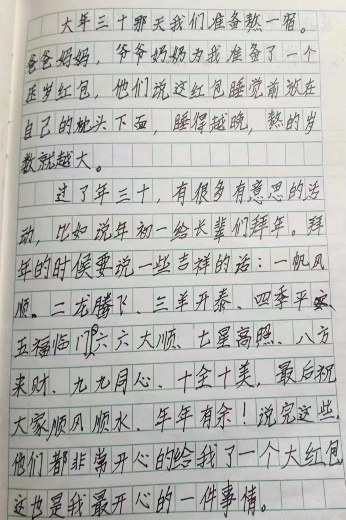 大年三十那天我们准备熬一宿。
爸爸妈妈，爷爷奶奶为我准备了一个
压岁红包，他们说这红包睡觉前放在
自己的枕头下面，睡得越晚，熬的岁
数就越大。
过了年三十，有很多有意思的活
动，比如说年初一给长辈们拜年。拜
年的时候要说一些吉祥的话：一帆风
顺、二龙腾飞、三羊开泰、四季平安
五福临门、六六大顺、七星高照、八方
来财、九九同心、十全十美，最后祝
大家顺风顺水、年年有余！说完这些，
他们都非常开心的给我了一个大红包，
这也是我最开心的一件事情。